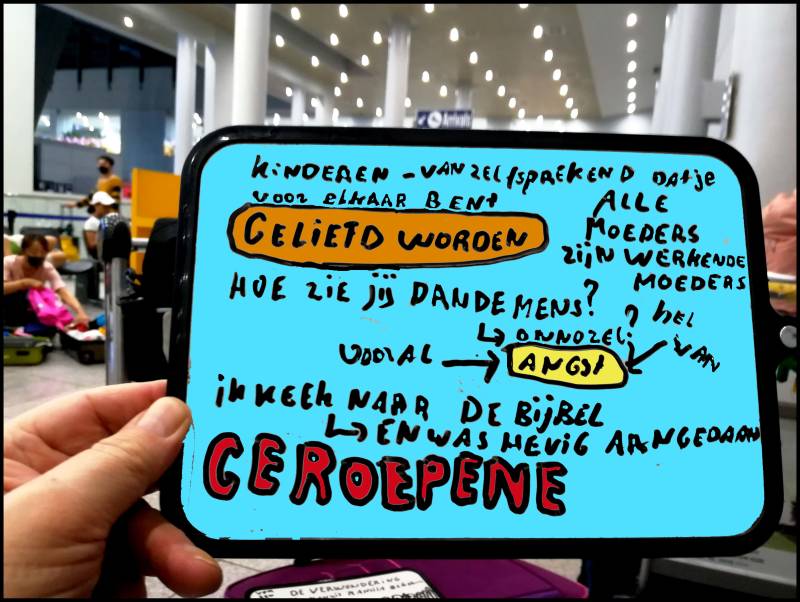 KINDEREN - VANZELFSPREKEND DATJE
VOOR ELKAAR BENT
GELIEFD WORDEN
ALLE
MOEDERS
ZIJN WERKENDE
MOEDERS
HOE ZIE JIJ DAN DE MENS?
↳ ONNOZEL?
? HEL
VAN
VOORAL → ANGST
IK KEEK NAAR DE BIJBEL
↳ EN WAS HEVIG AANGEDAAN
GEROEPENE
Arrivals
DE VERWONDERING